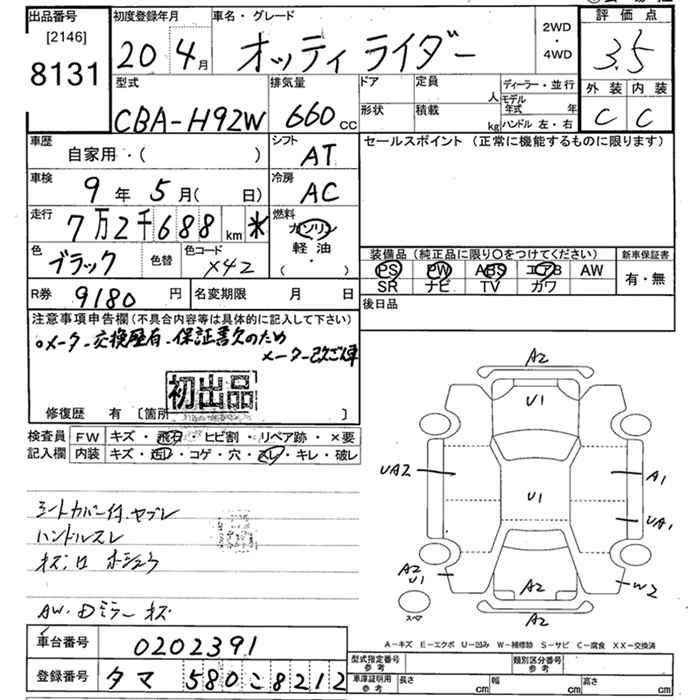 出品番号 初度登録年月 車名・グレード 評価点
[2146]
8131
20 4月 オッティ ライダー 2WD ・ 4WD 3.5
型式 排気量 ドア 定員 人 ディーラー・並行 外装 内装
CBA-H92W 660 cc 形状 積載 kg モデル年式 年 ハンドル 左・右 C C
車歴 自家用・( ) シフト AT セールスポイント (正常に機能するものに限ります)
車検 9年 5月( 日) 冷房 AC
走行 7万2千688 km * 燃料 ガソリン 軽油 ( ・ )
色 ブラック 色替 色コード X42
装備品 (純正品に限り○をつけてください) 新車保証書
PS PW ABS エアB AW 有・無
SR ナビ TV ガワ
R券 9180 円 名変期限 月 日 後日品
注意事項申告欄(不具合内容等は具体的に記入して下さい)
○メーター交換歴有・保証書欠のため
メーター改ざん車
初出品
修復歴 有 [箇所 ]
検査員 FW キズ・飛石・ヒビ割・リペア跡・×要
記入欄 内装 キズ・汚レ・コゲ・穴・スレ・キレ・破レ
シートカバー付
ハンドルスレ
AW・Dミラーキズ
A2
U1
UA2 A1
U1 UA1
A2 U1 W2
A2
A2
スペア
A－キズ E－エクボ U－凹み W－補修跡 S－サビ C－腐食 XX－交換済
車台番号 0202391
登録番号 タマ 580 こ 8212
型式指定番号 参考 類別区分番号 参考
車庫証明用 参考 長さ cm 幅 cm 高さ cm